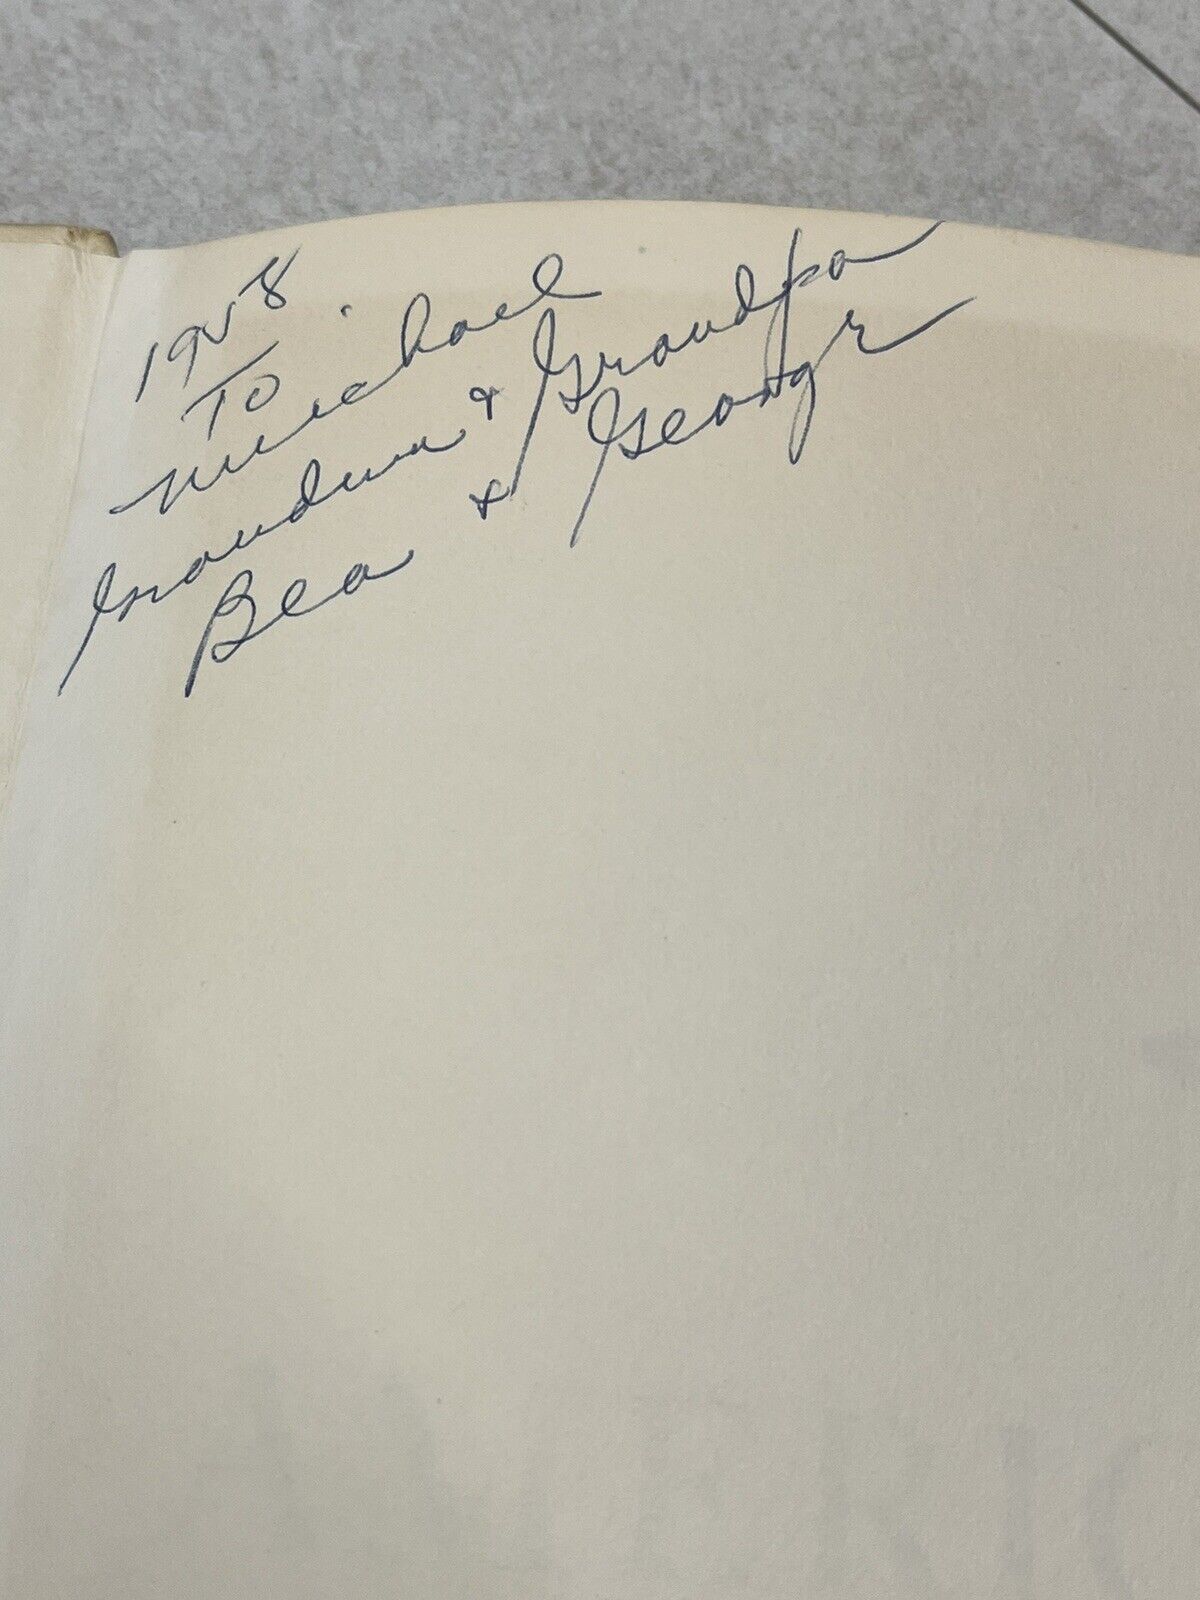 1958
To
Michael
Grandma & Grandpa
Bea & George